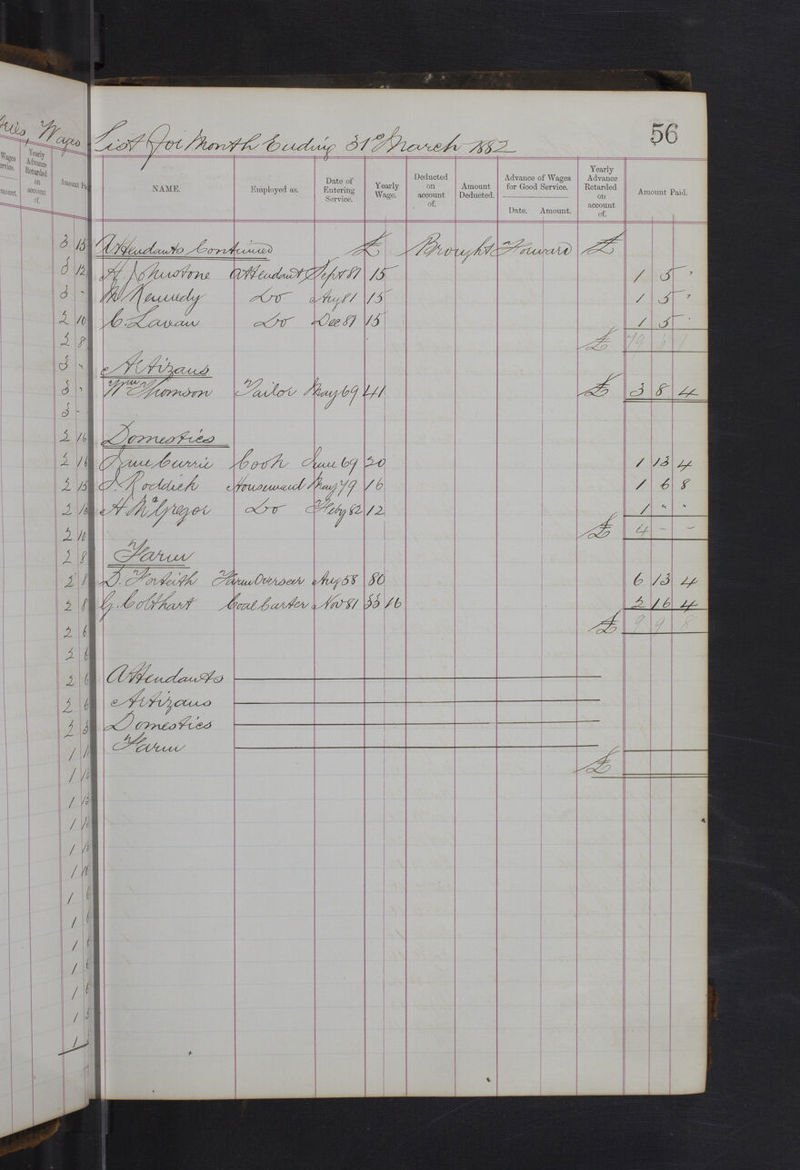 List for Month Ending 31st March 1882
56
NAME. Employed as. Date of Entering Service. Yearly Wage. Deducted on account of. Amount Deducted. Advance of Wages for Good Service. Date. Amount. Yearly Advance Retarded on account of. Amount Paid.
Attendants Continued £ Brought Forward £
A Johnstone Attendant Sept 81 15 1 5 "
M Kennedy Do Aug 81 15 1 5 "
C. Lavan Do Dec 81 15 1 5 "
£ 79 6 1
Artizans
Wm Thomson Tailor May 69 41 £ 3 8 4
Domestics
Jane Currie Cook June 69 20 1 13 4
J. Roddick Housemaid May 79 16 1 6 8
A McGregor Do Feby 82 12 1 " "
£ 4 - -
Farm
D. Forteith Farm Overseer Aug 58 80 6 13 4
G. Colthart Coal Carter Nov 81 33 16 2 16 4
£ 9 9 8
Attendants
Artizans
Domestics
Farm
£